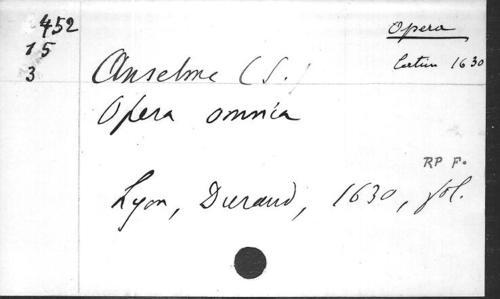 452
15
3
Opera
Latin 1630
Anselme (S.)
Opera omnia
RP F.
Lyon, Durand, 1630, fol.